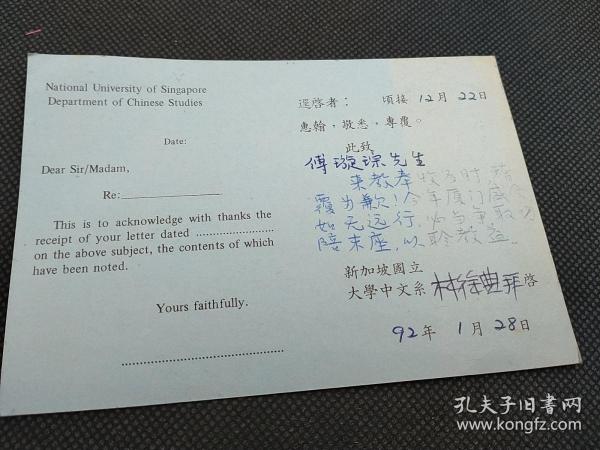 National University of Singapore
Department of Chinese Studies
Date:
Dear Sir/Madam,
Re:
This is to acknowledge with thanks the
receipt of your letter dated ........................
on the above subject, the contents of which
have been noted.
Yours faithfully.
逕啓者： 頃接 12月 22日
惠翰，敬悉，專覆。
此致
傅璇琮先生
来教奉收多时，稽
覆为歉！今年厦门底会
如无远行，必当争取
陪末座，以聆教益。
新加坡國立
大學中文系 林徐典 拜啓
92年 1月 28日
孔夫子旧书网
www.kongfz.com